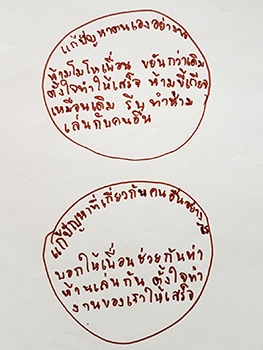 แก้ปัญหาตนเองอย่างไร
ห้ามโมโหเพื่อน ขยันกว่าเดิม
ตั้งใจทำให้เสร็จ ห้ามขี้เกียจ
เหมือนเดิม รีบทำห้าม
เล่นกับคนอื่น
แก้ปัญหาที่เกี่ยวกับคนอื่นอย่างไร
บอกให้เพื่อนช่วยกันทำ
ห้ามเล่นกัน ตั้งใจทำ
งานของเราให้เสร็จ